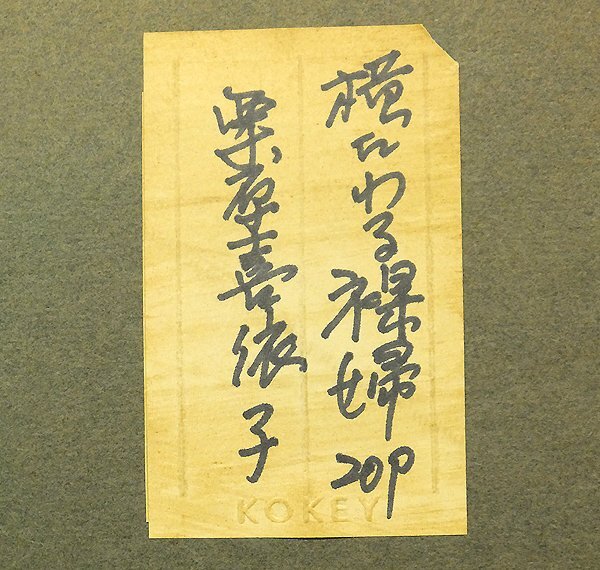 横たわる裸婦 20P
栗原喜依子
KOKEY